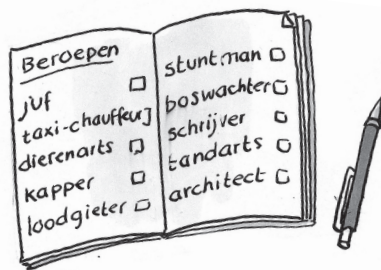 Beroepen
juf
taxi-chauffeur
dierenarts
kapper
loodgieter
stuntman
boswachter
schrijver
tandarts
architect